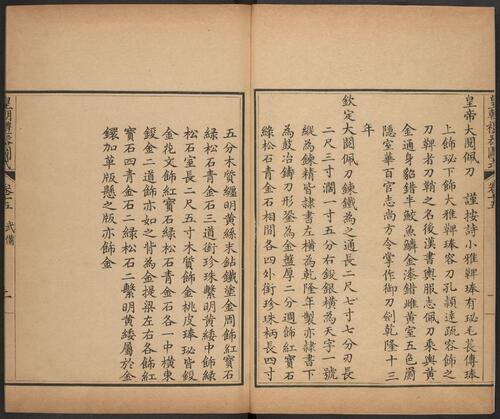 皇帝大閱佩刀　謹按詩小雅鞞琫有珌毛萇傳琫
上飾珌下飾大雅鞞琫容刀孔頴達疏容飾之
刀鞞者刀鞘之名後漢書輿服志佩刀乘輿黃
金通身貂錯半鮫魚鱗金漆錯雌黃室五色罽
隱室華百官志尚方令掌作御刀劍乾隆十三
年
欽定大閱佩刀鍊鐵為之通長二尺七寸七分刃長
二尺三寸濶一寸五分右鋄銀橫為天字一號
縱為鍊精皆隸書左橫為乾隆年製亦隸書下
為鼓冶鑄刀形銎為金盤厚二分週飾紅寶石
綠松石青金石相間各四外銜珍珠柄長四寸
五分木質纏明黃絲末鈷鐵塗金周飾紅寶石
綠松石青金石三道銜珍珠繫明黃緌中飾綠
松石室長二尺五寸木質飾金桃皮琫珌皆鋄
金花文飾紅寶石綠松石青金石各一中橫束
鋄金二道飾亦如之背為金提梁左右各飾紅
寶石四青金石二綠松石二繫明黃緌屬於金
鐶加革版懸之版亦飾金
皇朝禮器圖式　卷十五　武備　一